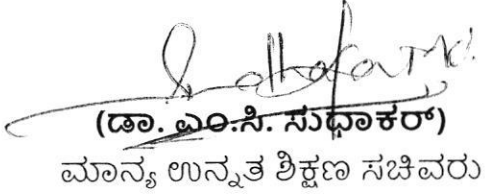 (ಡಾ. ಎಂ.ಸಿ. ಸುಧಾಕರ್)
ಮಾನ್ಯ ಉನ್ನತ ಶಿಕ್ಷಣ ಸಚಿವರು